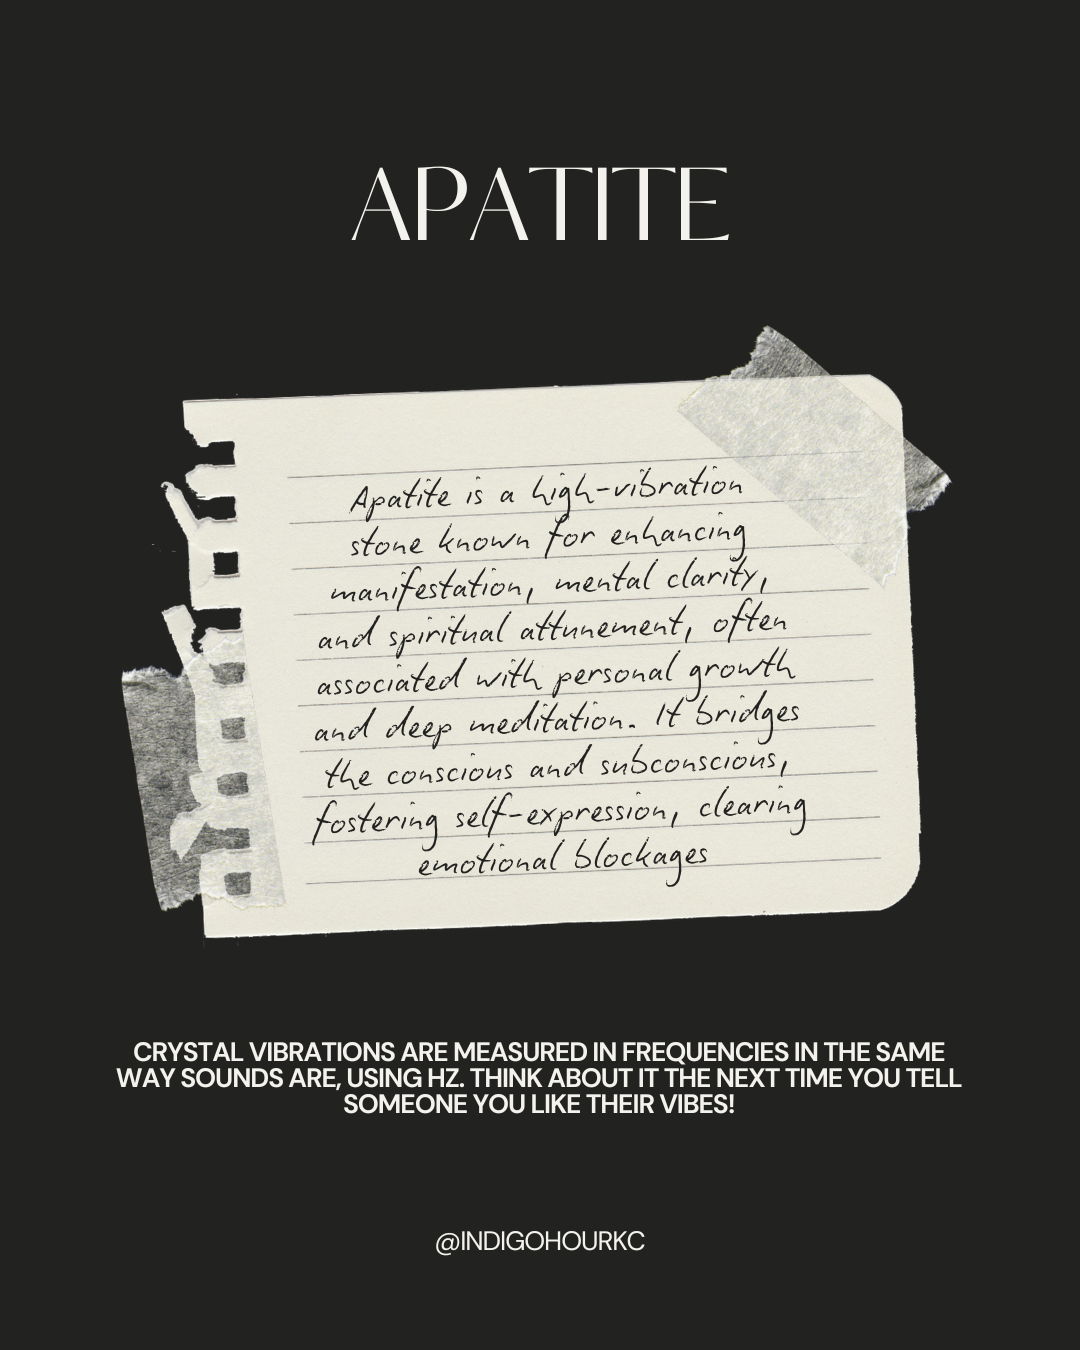 APATITE
Apatite is a high-vibration
stone known for enhancing
manifestation, mental clarity,
and spiritual attunement, often
associated with personal growth
and deep meditation. It bridges
the conscious and subconscious,
fostering self-expression, clearing
emotional blockages
CRYSTAL VIBRATIONS ARE MEASURED IN FREQUENCIES IN THE SAME
WAY SOUNDS ARE, USING HZ. THINK ABOUT IT THE NEXT TIME YOU TELL
SOMEONE YOU LIKE THEIR VIBES!
@INDIGOHOURKC